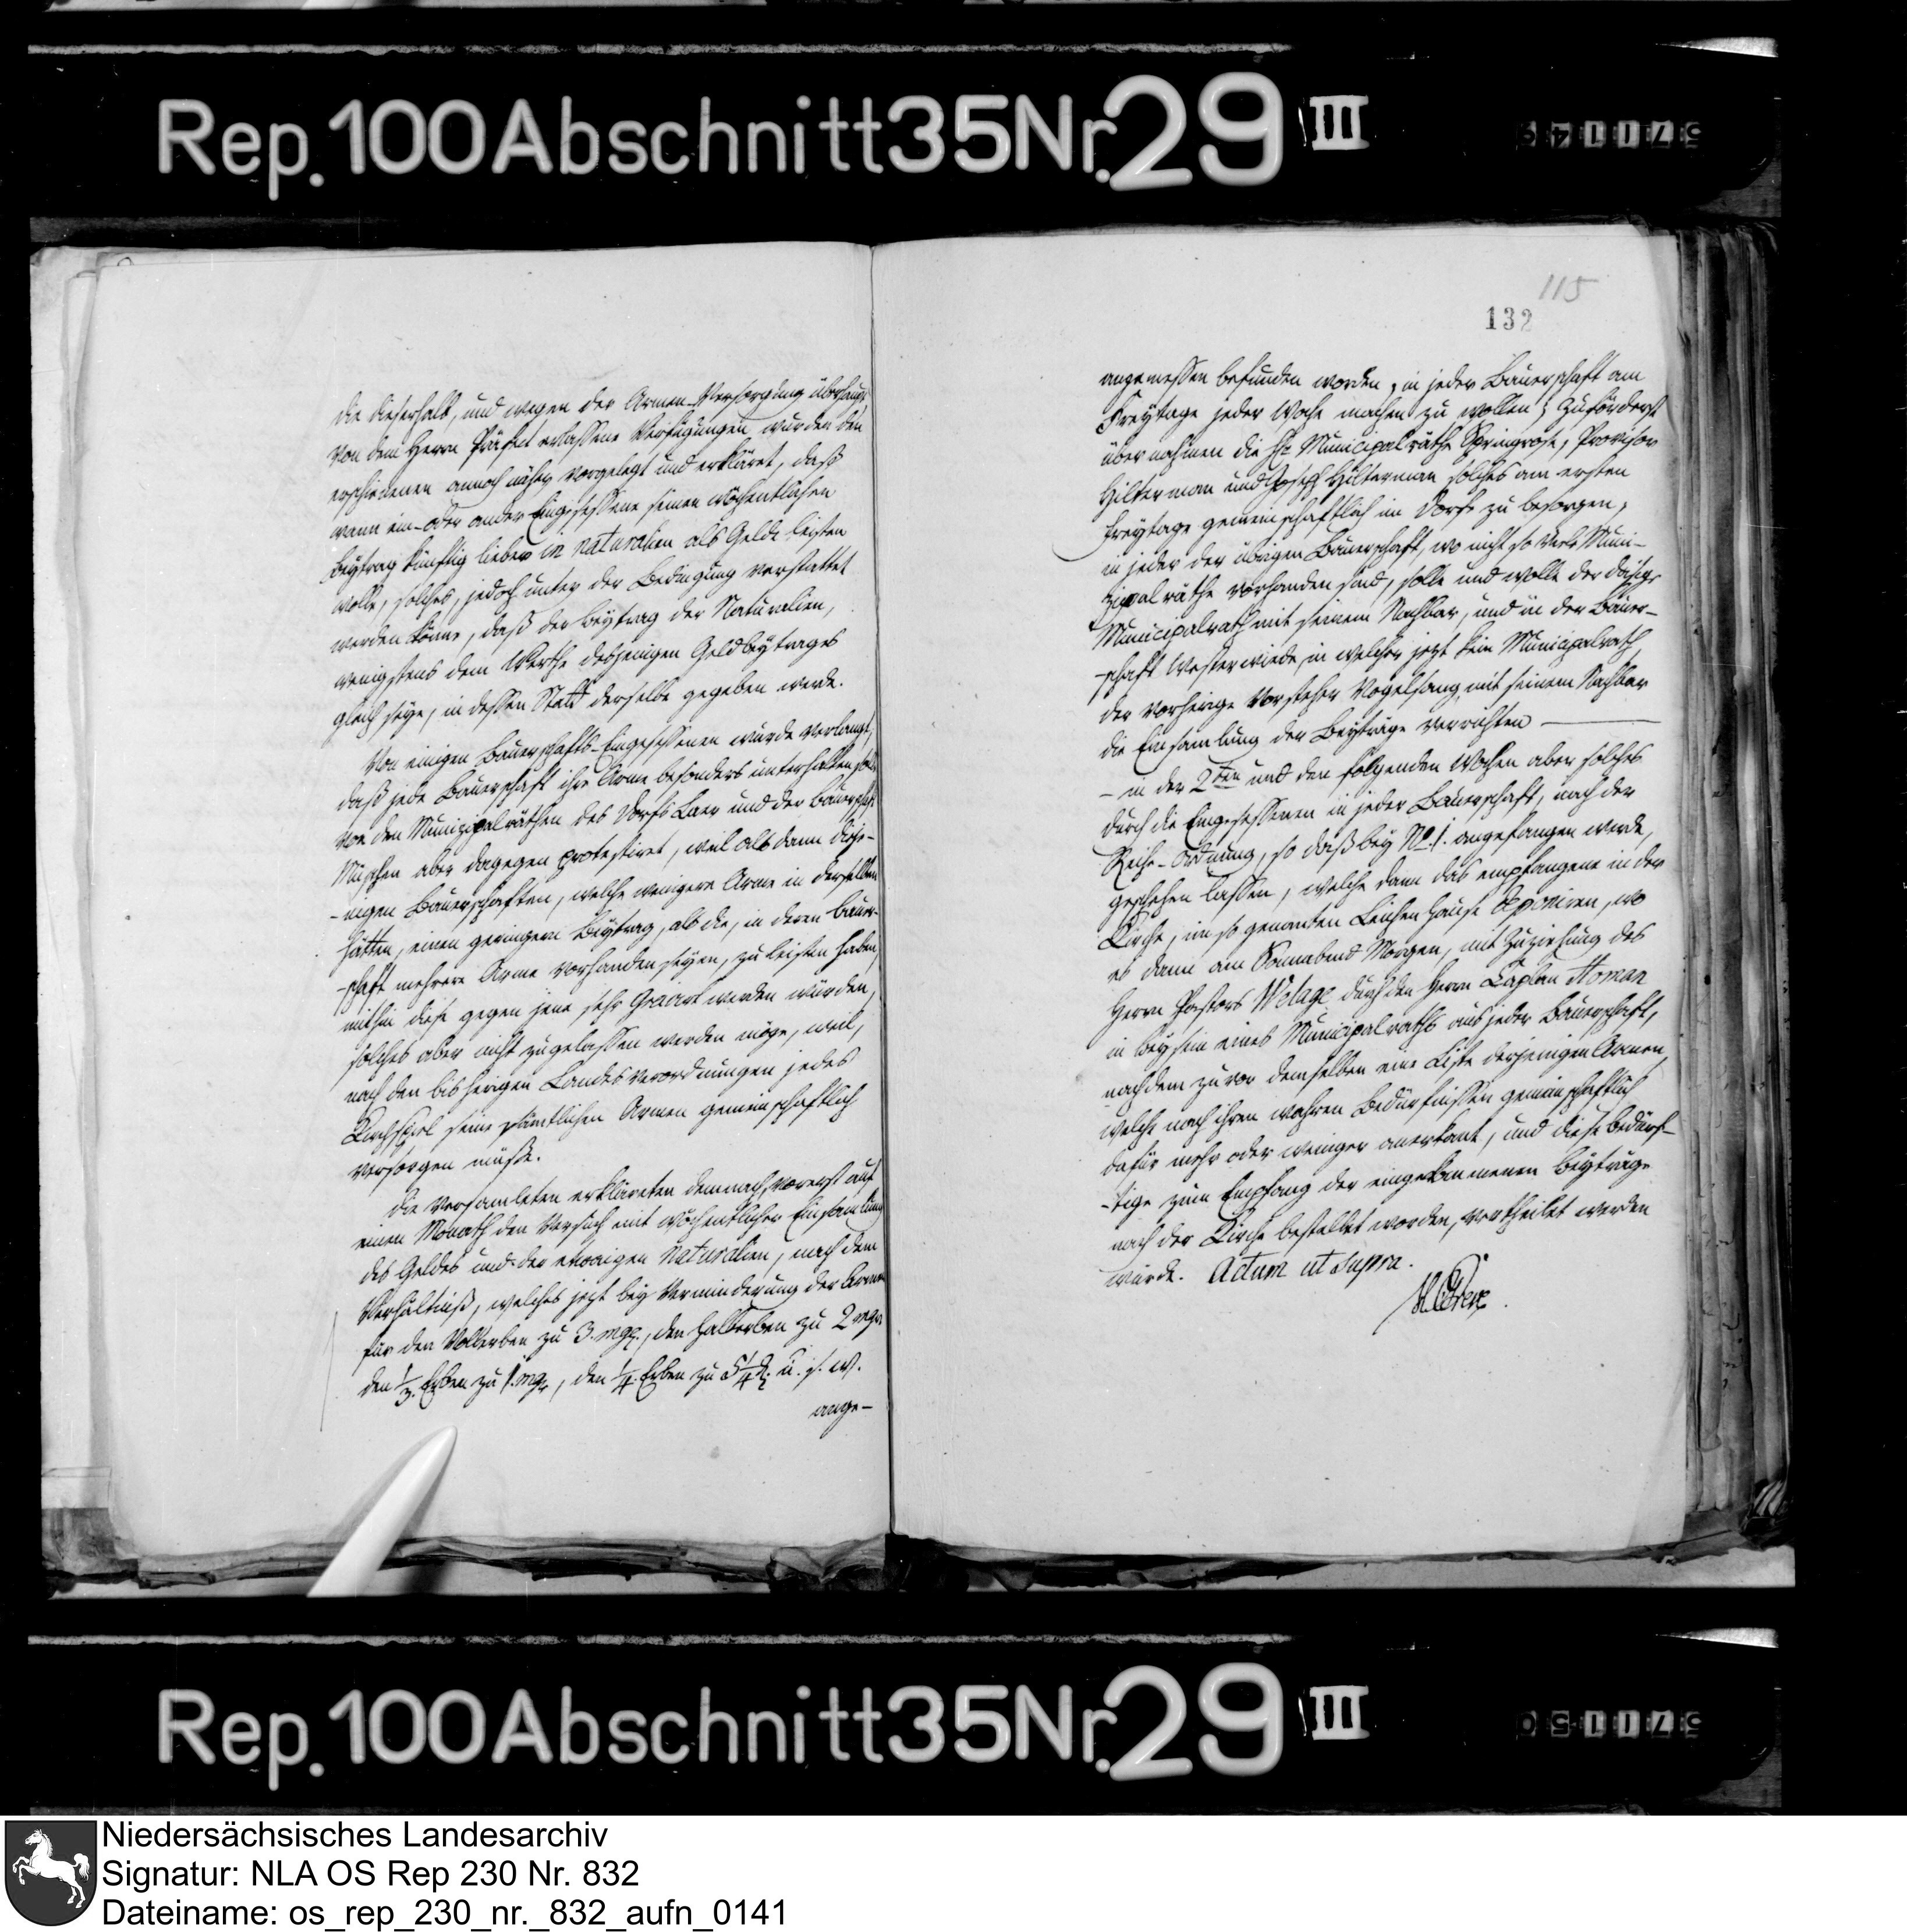 Rep. 100 Abschnitt 35 Nr. 29 III
die dieserhalb, und wegen der Armen-Versorgung überhaupt
von dem Herrn Präfect erlassene Verfügungen wurden den
erschienenen annoch näher vorgelegt und erkläret, daß
wann ein- oder ander Eingesessene seinen wöchentlichen
Beytrag künftig lieber in naturalien als Gelde leisten
wolle, solches, jedoch unter der Bedingung verstattet
werden könne, daß der Beytrag der Naturalien,
wenigstens dem Werthe desjenigen Geldbeytrages
gleich seye, in dessen Statt derselbe gegeben werde.
Von einigen Bauerschafts-Eingesessenen wurde verlangt,
daß jede Bauerschaft ihre Arme besonders unterhalten solle
von den Munizipalräthen des Dorfs Laer und der Bauerschaft
Müschen aber dagegen protestiret, weil alsdann dieje-
-nigen Bauerschaften, welche wenigere Arme in derselben
hätten, einen geringern Beytrag, als die, in deren Bauer-
-schaft mehrere Arme vorhanden seyen, zu leisten haben,
mithin diese gegen jene sehr Gravirt werden würden,
solches aber nicht zugelassen werden möge, weil,
nach den bisherigen Landes Verordnungen jedes
Kirchspiel seine sämtlichen Armen gemeinschaftlich
versorgen müsse.
Die Versamleten erklärten demnach, vorerst auf
einen Monath den Versuch mit wöchentlicher Einsamlung
des Geldes und der etwaigen Naturalien, nach dem
Verhältniß, welches jezt bey Verminderung der Armen
für den Vollerben zu 3. mgr., den Halberben zu 2 mgr
den 1/3. Erben zu 1. mgr, den 1/4. Erben zu 5 1/4 d. u. s. w.
ange-
115
132
angemessen befunden worden, in jeder Bauerschaft am
Freytage jeder Woche machen zu wollen; Zuförderst
übernahmen die Hr. Municipalräthe Springrose, Provisor
Hilterman und Joseph Hilterman solches am ersten
Freytage gemeinschaftlich im Dorfe zu besorgen,
in jeder der übrigen Bauerschaft, wo nicht so viele Muni-
zipalräthe vorhanden sind, solle und wolle der dasige
Municipalrath mit seinem Nachbar, und in der Bauer-
-schaft Westerwiede, in welcher jezt kein Municipalrath,
der vorherige Vorsteher Vogelsang mit seinem Nachbar
die Einsamlung der Beyträge verrichten —
– in der 2ten und den folgenden Wochen aber solches
durch die Eingesessenen in jeder Bauerschaft, nach der
Reihe-Ordnung, so daß bey No. 1. angefangen werde,
geschehen lassen, welche dann das empfangene in der
Kirche, im so genanten Leichenhause deponiren, wo
es dann am Sonnabend Morgen, mit Zuziehung des
Herrn Pastors Welage durch den Herrn Caplan Homan
in Beysein eines Municipalraths aus jeder Bauerschaft,
nachdem zuvor demselben eine Liste derjenigen Armen,
welche nach ihren wahren Bedürfnissen gemeinschaftlich
dafür mehr oder weniger anerkant, und diese Bedürf-
-tige zum Empfang der eingekommenen Beyträge
nach der Kirche bestellet worden, vertheilet werden
würde. Actum ut supra.
Rep. 100 Abschnitt 35 Nr. 29 III
Niedersächsisches Landesarchiv
Signatur: NLA OS Rep 230 Nr. 832
Dateiname: os_rep_230_nr._832_aufn_0141